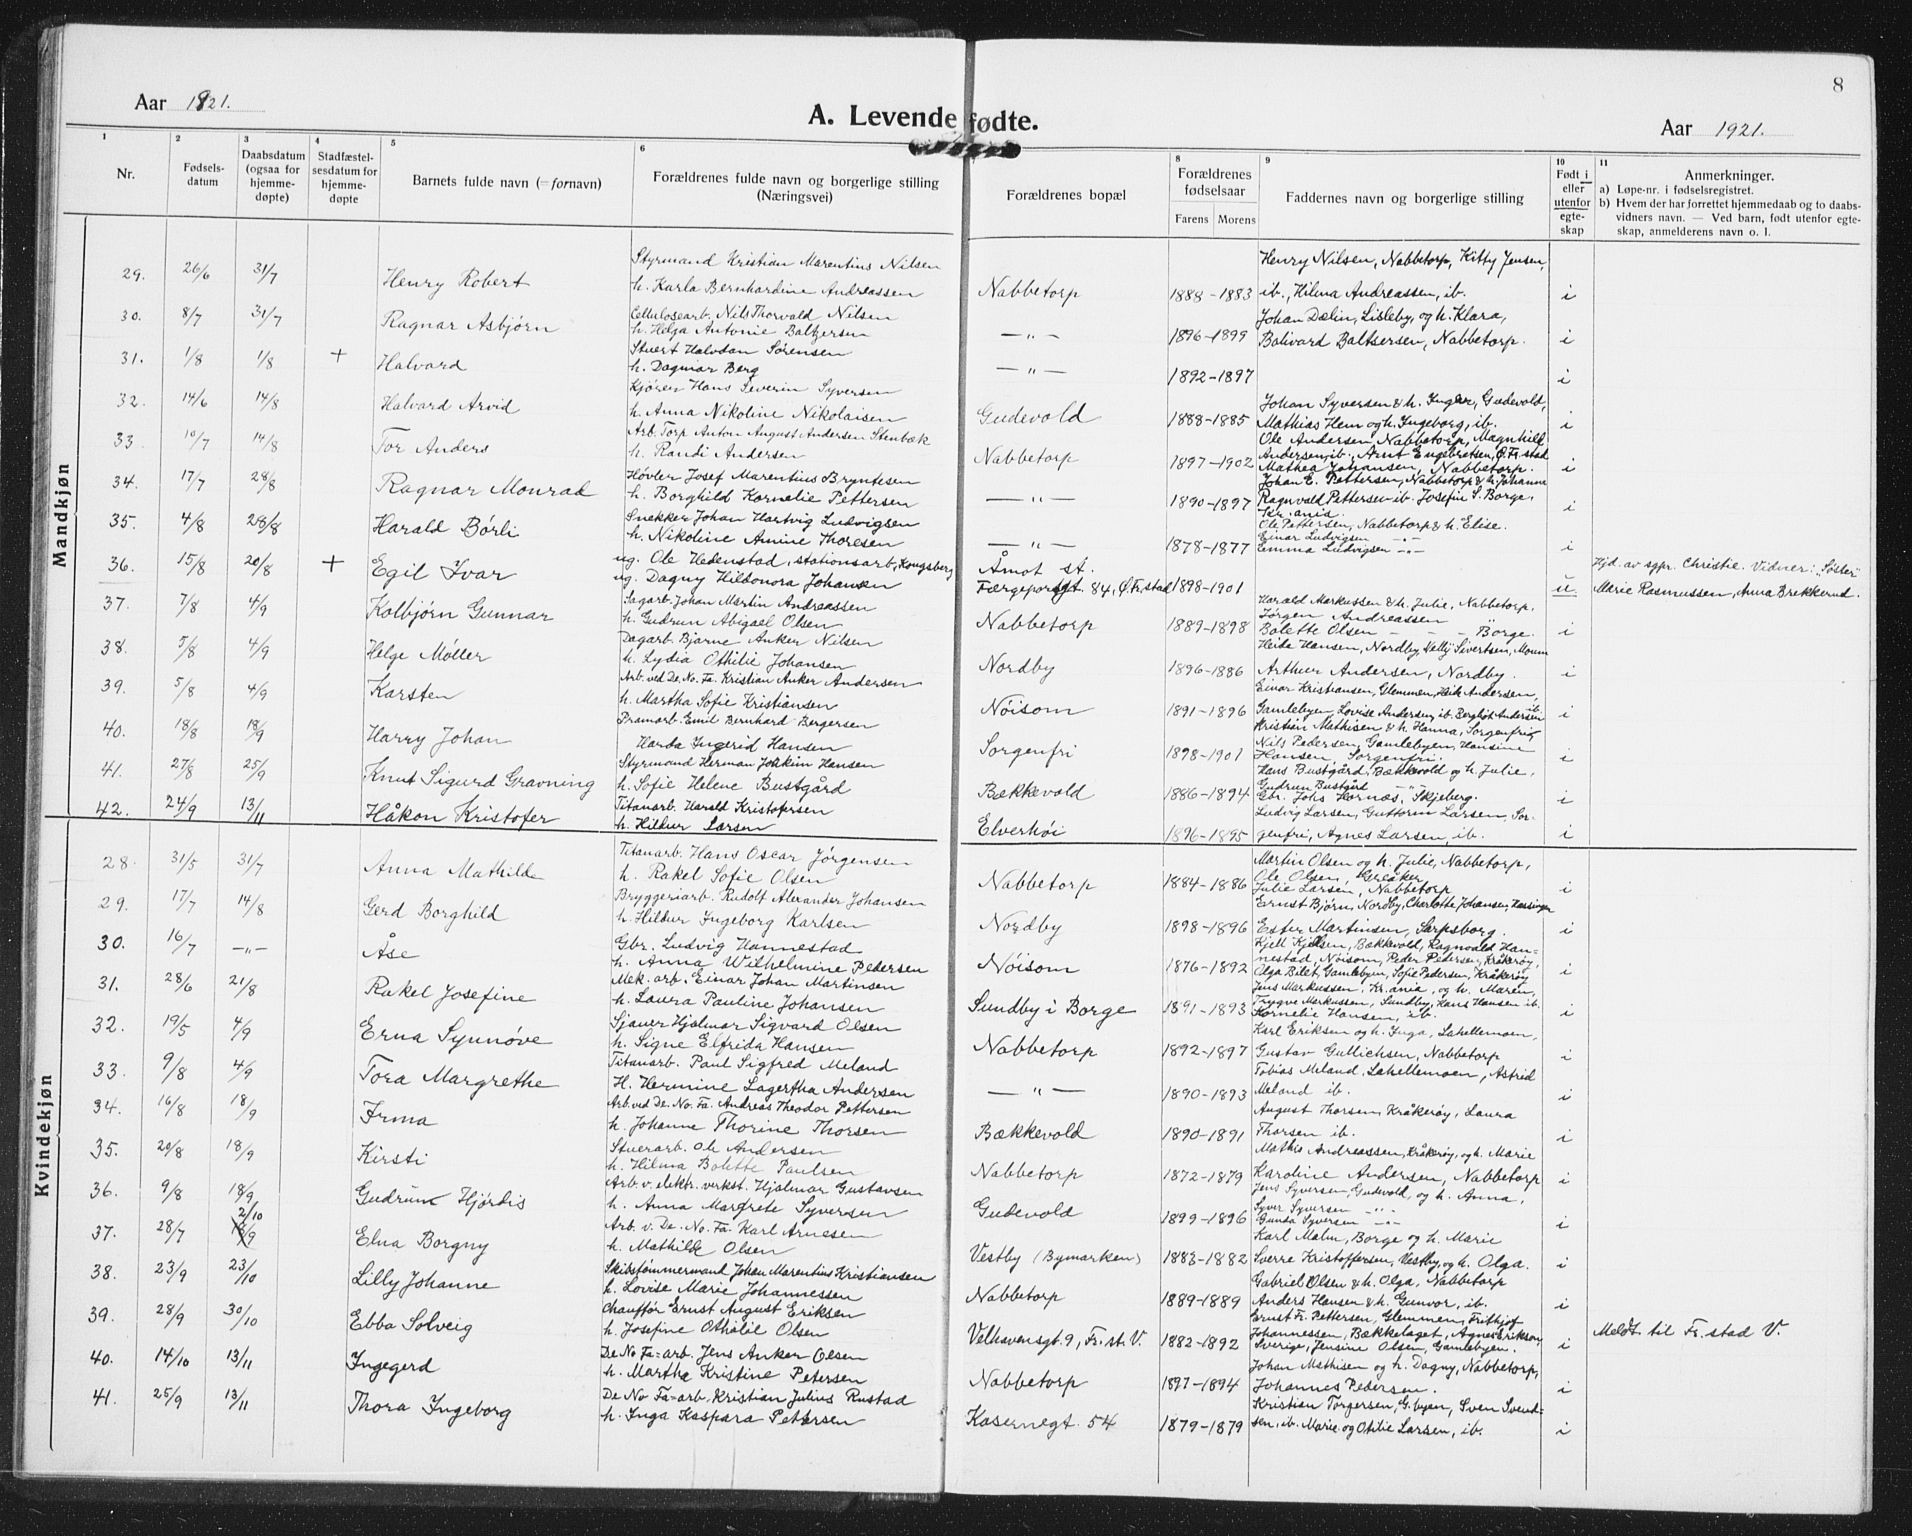 Aar 1921.
A. Levende fødte.
8
Aar 1921.
1 2 3 4 5 6 8 9 10 11
Nr.
Fødsels-
datum
Daabsdatum
(ogsaa for
hjemme-
døpte)
Stadfæstel-
sesdatum for
hjemme-
døpte
Barnets fulde navn (= fornavn)
Forældrenes fulde navn og borgerlige stilling
(Næringsvei)
Forældrenes bopæl
Forældrenes
fødselsaar
Farens Morens
Faddernes navn og borgerlige stilling
Født i
eller
utenfor
egte-
skap
Anmerkninger.
a) Løpe-nr. i fødselsregistret.
b) Hvem der har forrettet hjemmedaab og to daabs-
vidners navn. — Ved barn, født utenfor egte-
skap, anmelderens navn o. l.
Mandkjøn
Styrmand Kristian Marentius Nilsen Henry Nilsen, Nabbetorp, Kitty Jensen,
29. 26/6 31/7 Henry Robert h. Karla Bernhardine Andreassen Nabbetorp 1888-1883 ib., Hilma Andreassen, ib. i
Cellulosearb. Nils Thorvald Nilsen Johan Dælin, Lisleby, og h. Klara,
30. 8/7 31/7 Ragnar Asbjørn h. Helga Antonie Baltzersen — " — 1896-1899 Bolivard Baltsersen, Nabbetorp. i
Stuert Halvdan Sørensen
31. 1/8 1/8 + Halvard h. Dagmar Berg — " — 1892-1897 i
Kjører Hans Severin Syversen Johan Syversen & h. Inger, Gudevold,
32. 14/6 14/8 Halvard Arvid h. Anna Nikoline Nikolaisen Gudevold 1888-1885 Mathias Hem og h. Ingeborg, ib. i
Arb. Torp Anton August Andersen Stenbæk Ole Andersen, Nabbetorp, Magnhild
33. 10/7 14/8 Tor Anders h. Randi Andersen Nabbetorp 1897-1902 Andersen, ib., Arnt Engebretsen, Ø. Fr.stad i
Mathea Johansen, Nabbetorp.
Høvler Josef Marentius Bryntesen Johan E. Pettersen, Nabbetorp & h. Johanne
34. 17/7 28/8 Ragnar Monrad h. Borghild Kornelie Pettersen — " — 1890-1897 Ragnvald Pettersen ib. Josefin S. Borge, i
Kr.ania.
Snekker Johan Hartvig Ludvigsen Ole Pettersen, Nabbetorp & h. Elise.
35. 4/8 28/8 Harald Børli h. Nikoline Amine Thoresen — " — 1878-1877 Einar Ludvigsen — " — i
Emma Ludvigsen — " —
ug. Ole Hedenstad, stationsarb, Kongsberg Åmot st. Hjd. av sgpr. Christie. Vidner: "Søster"
36. 15/8 20/8 + Egil Ivar ug. Dagny Hildonora Johansen Færgeportgt. 84, Ø. Fr.stad 1898-1901 u. Marie Rasmussen, Anna Brekkerud.
Sagarb. Johan Martin Andreassen Harald Markussen & h. Julie, Nabbetorp,
37. 7/8 4/9 Kolbjørn Gunnar h. Gudrun Abigael Olsen Nabbetorp 1889-1898 Jørgen Andreassen
Bolette Olsen — — — Borge. i
Dagarb. Bjarne Anker Nilsen Heide Hansen, Nordby, Nelly Sivertsen, Moum
38. 5/8 4/9 Helge Møller h. Lydia Othilie Johansen Nordby 1896-1886 Arthur Andersen, Nordby. i
Arb. ved De. No. Fa. Kristian Anker Andersen Einar Kristiansen, Glemmen, Heik Andersen,
39. 5/8 4/9 Karsten h. Martha Sofie Kristiansen Nöisom 1891-1896 Gamlebyen, Lovise Andersen, ib. Bergliot Andersen ib. i
Pramarb. Emil Bernhard Bergersen Kristian Mathisen & h. Hanna, Sorgenfri
40. 18/8 18/9 Harry Johan Harda Ingerid Hansen Sorgenfri 1898-1901 Nils Pedersen, Gamlebyen, Hansine
Hansen, Sorgenfri. i
Styrmand Herman Joakim Hansen Hans Bustgård, Bækkevold og h. Julie,
41. 27/8 25/9 Knut Sigurd Gravning h. Sofie Helene Bustgård Bækkevold 1886-1894 Gudrun Bustgård — " —
Gbr. Johs Hornæs, Skjeberg. i
Titanarb. Harald Kristofersen Ludvig Larsen, Guttorm Larsen, Sor-
42. 24/9 13/11 Håkon Kristofer h. Hildur Larsen Elverhöi 1896-1895 genfri, Agnes Larsen, ib. i
Kvindekjøn
Titanarb. Hans Oscar Jørgensen Martin Olsen og h. Julie, Nabbetorp,
28. 31/5 31/7 Anna Mathilde h. Rakel Sofie Olsen Nabbetorp 1884-1886 Ole Olsen, Greåker
Julie Larsen, Nabbetorp i
Bryggeriarb. Rudolf Alexander Johansen Ernst Bjørn, Nordby, Charlotte Johansen,
29. 17/7 14/8 Gerd Borghild h. Hildur Ingeborg Karlsen Nordby 1898-1896 Ester Martinsen, Sarpsborg. i
Gbr. Ludvig Hannestad Kjell Kjølsen, Bækkevold, Ragnvald Han-
30. 16/7 —"— Åse h. Anna Wilhelmine Pedersen Nöisom 1876-1892 nestad, Nöisom, Peder Pedersen, Kråkerøy,
Olga Bilet, Gamlebyen, Sofie Pedersen, Kråkerøy i
Mek. arb. Einar Johan Martinsen Jens Markussen, Kr.ania, og h. Maren,
31. 28/6 21/8 Rakel Josefine h. Laura Pauline Johansen Sundby i Borge 1891-1893 Trygve Markussen, Sundby, Hans Hansen ib.
Kornelie Hansen, ib. i
Sjauer Hjalmar Sigvard Olsen Karl Eriksen og h. Inga, Lahellemoen,
32. 19/5 4/9 Erna Synnøve h. Signe Elfrida Hansen Nabbetorp 1892-1897 Gustav Gullichsen, Nabbetorp i
Titanarb. Paul Sigfred Meland Tobias Meland, Lahellemoen, Astrid
33. 9/8 4/9 Tora Margrethe H. Hermine Lagertha Andersen — " — 1890-1893 Meland ib. i
Arb. ved De. No. Fa. Andreas Theodor Pettersen August Thorsen, Kråkerøy, Laura
34. 16/8 18/9 Irma h. Johanne Thorine Thorsen Bækkevold 1890-1891 Thorsen ib. i
Stuerarb. Ole Andersen Mathis Andreassen, Kråkerøy, og h. Marie
35. 20/8 18/9 Kirsti h. Hilma Bolette Paulsen Nabbetorp 1872-1879 Karoline Andersen, Nabbetorp i
Arb. v. elektr. verkst. Hjalmar Gustavsen Jens Syversen, Gudevold, og h. Anna,
36. 9/8 18/9 Gudrun Hjørdis h. Anna Margrete Syversen Gudevold 1899-1896 Syver Syversen — " —
Gunda Syversen — " — i
2/10 Arb. v. De. No. Fa. Karl Arnesen Karl Malm, Borge og h. Marie
37. 28/7 18/9 Elna Borgny h. Mathilde Olsen Vestby (Bymarken) 1883-1882 Sverre Kristoffersen, Vestby, og h. Olga. i
Skibstømmermand Johan Marentius Kristiansen Gabriel Olsen & h. Olga, Nabbetorp
38. 23/9 23/10 Lilly Johanne h. Lovise Marie Johannessen Nabbetorp 1889-1889 Anders Hansen & h. Gunvor, ib. i
Chauffør Ernst August Eriksen Ernst Fr. Pettersen, Glemmen, Frithjof
39. 28/9 30/10 Ebba Solveig h. Josefine Othilie Olsen Velhavensgt. 9, Fr. st. V. 1882-1892 Johannessen, Bækkelaget, Agnes Erikson,
Sverige, Jensine Olsen, Gamlebyen. i Meldt til Fr. stad V.
De No Fa=arb. Jens Anker Olsen Johan Mathisen og h. Dagny, Nabbetorp,
40. 14/10 13/11 Ingegerd h. Martha Kristine Petersen Nabbetorp 1897-1894 Johannes Pedersen. i
De No Fa=arb. Kristian Julius Rustad Kristian Torgersen, G. byen, Sven Svend-
41. 25/9 13/11 Thora Ingeborg h. Inga Kaspara Pettersen Kasernegt. 54 1879-1879 sen, ib. Marie og Otilie Larsen, ib. i